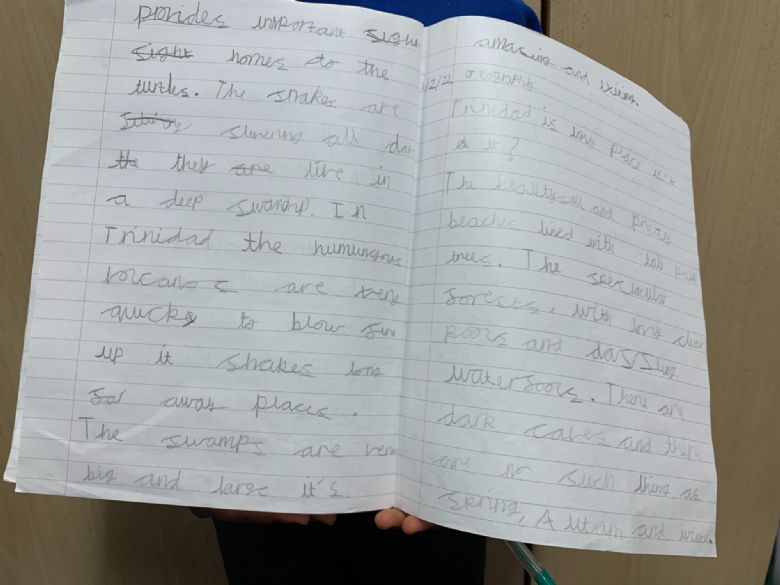 provides important sight
sight homes to the
turtles. The snakes are
slivery all day
the they are live in
a deep swamp. In
Trinidad the humungous
volcanos are very
quick to blow
up it shakes long
far away places.
The swamps are very
big and large it's
amazing and
1/2/22 Geography
Trinidad is long place isn't
it?
The and pretty
beaches lined with tall palm
trees. The spectacular
forests, with long clear
pools and
waterfools. There are
dark caves and there
are no such thing as
spring, Autam and winter.